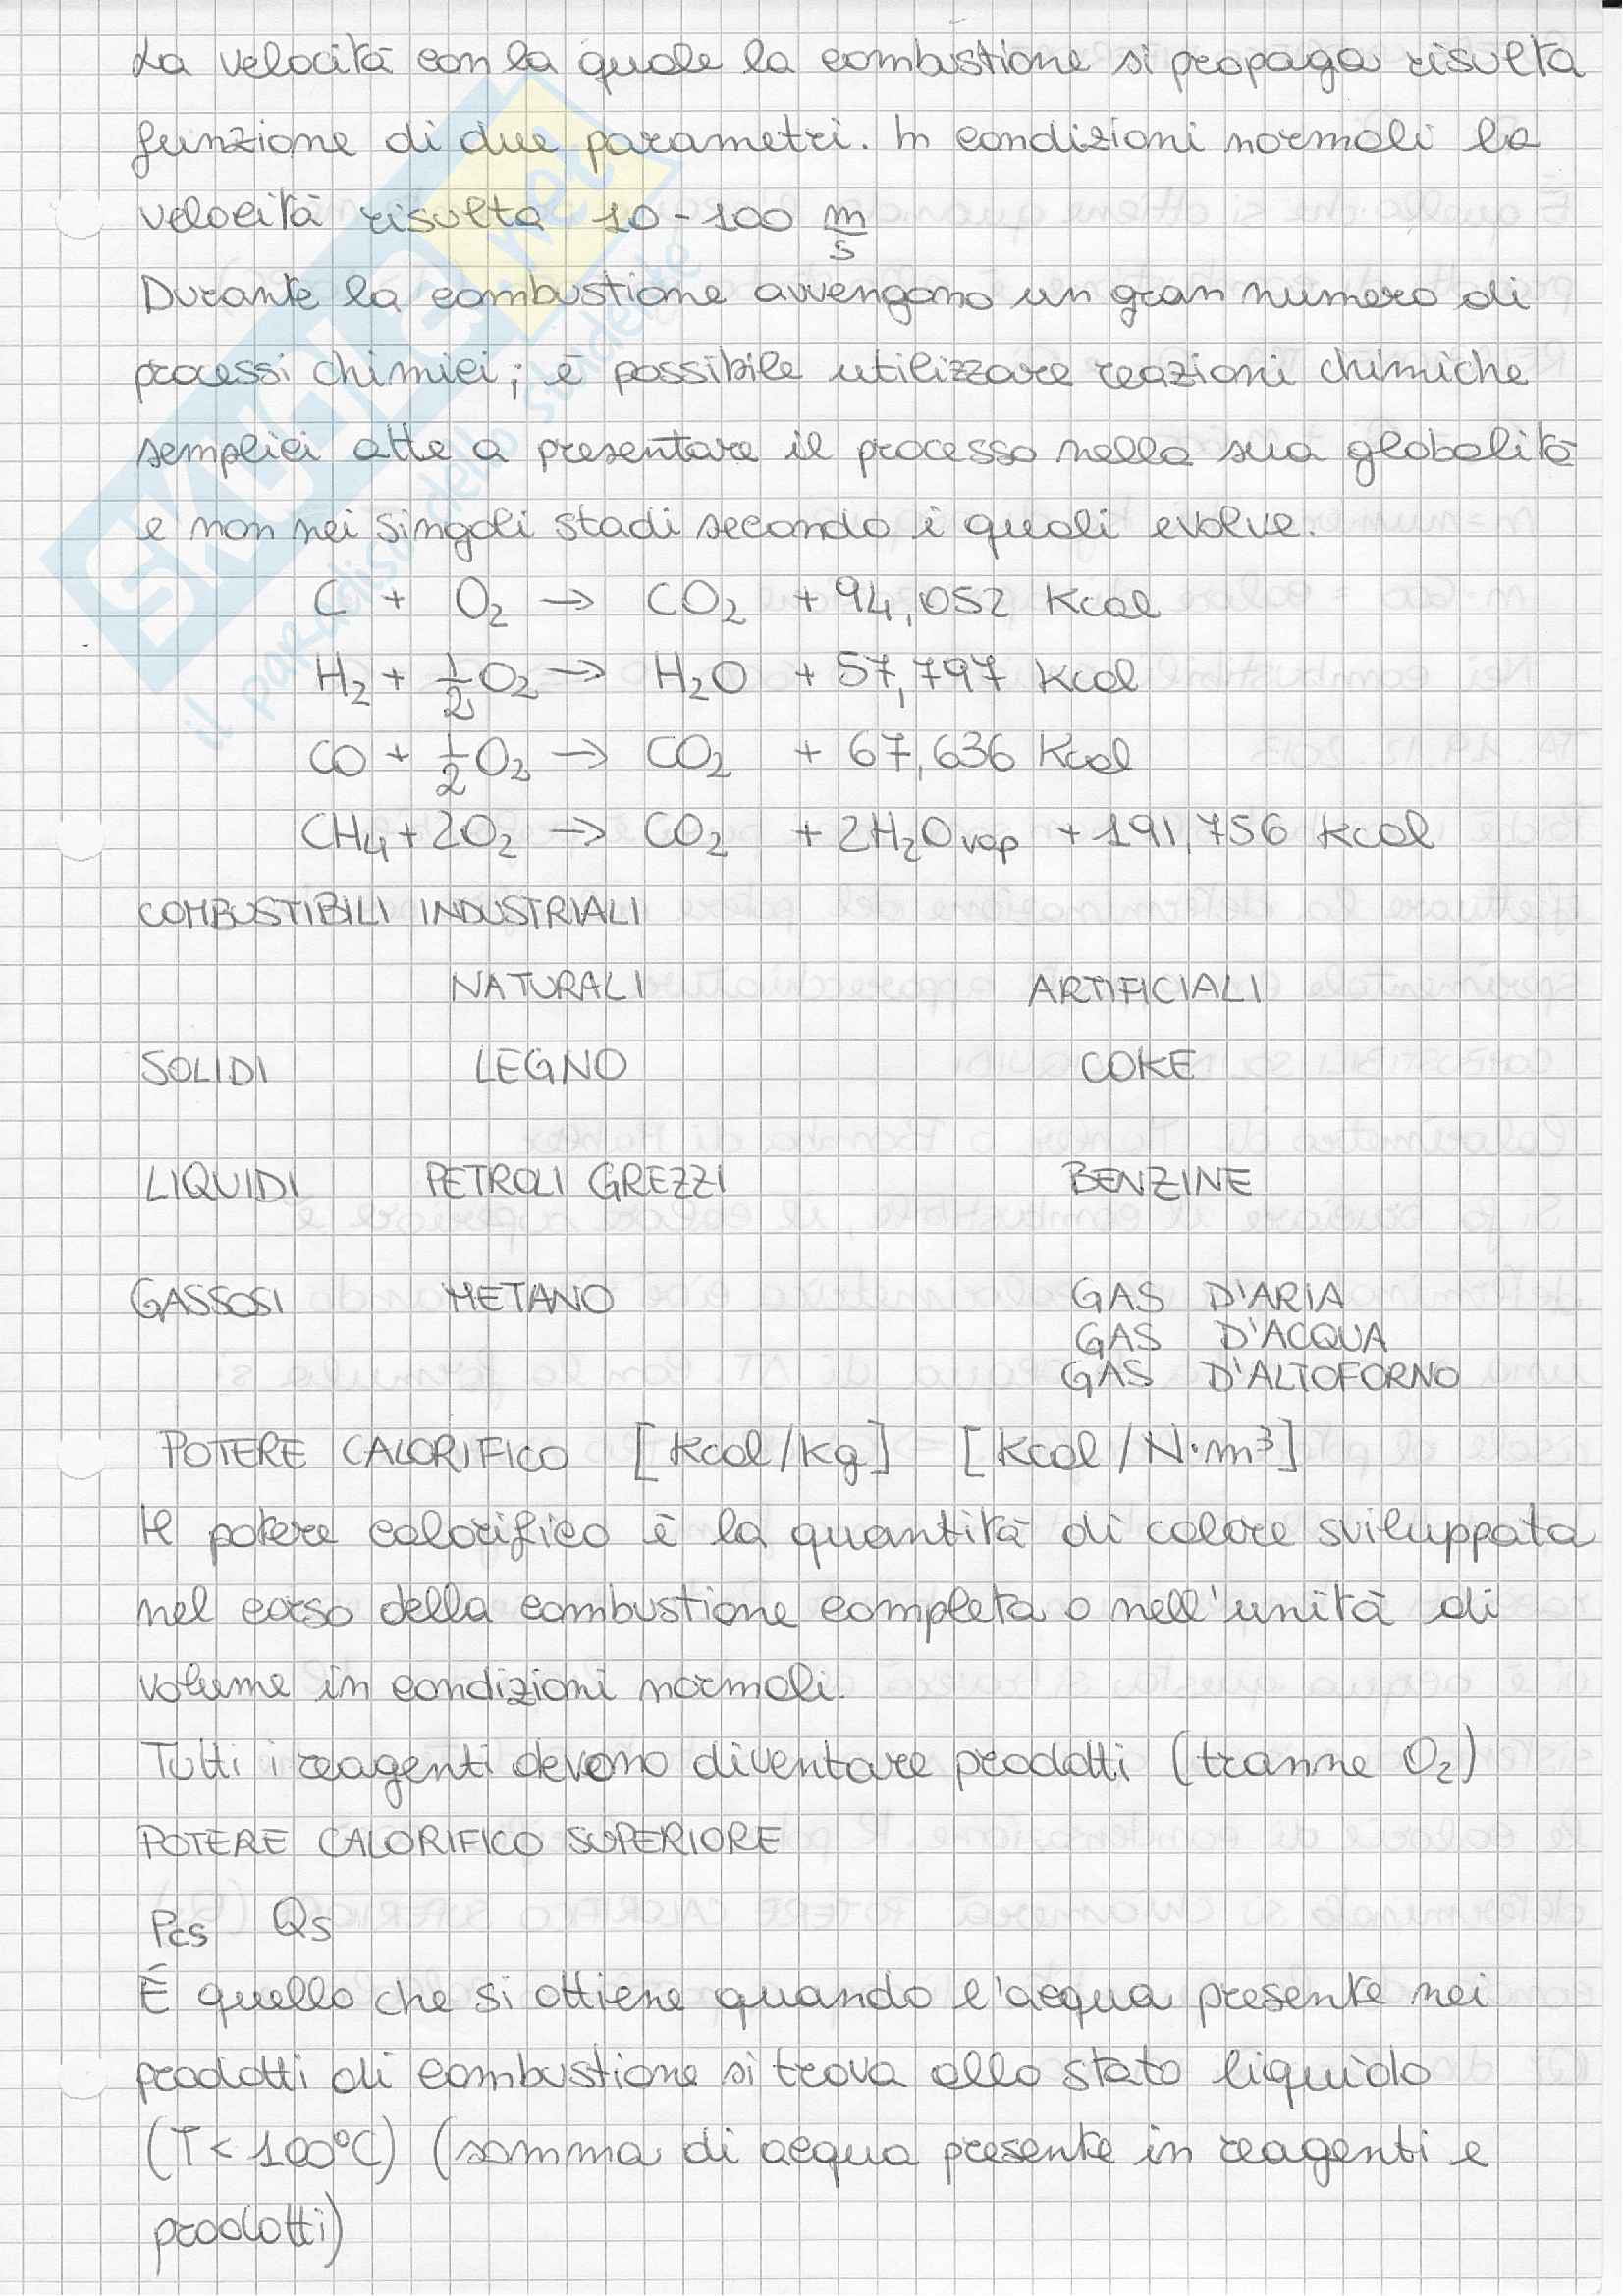 La velocità con la quale la combustione si propaga risulta
funzione di due parametri. In condizioni normali la
velocità risulta 10-100 m/s
Durante la combustione avvengono un gran numero di
processi chimici; è possibile utilizzare reazioni chimiche
semplici atte a presentare il processo nella sua globalità
e non nei singoli stadi secondo i quali evolve.
C + O₂ → CO₂ + 94,052 Kcal
H₂ + 1/2 O₂ → H₂O + 57,797 Kcal
CO + 1/2 O₂ → CO₂ + 67,636 Kcal
CH₄ + 2O₂ → CO₂ + 2H₂O vap + 191,756 kcal
COMBUSTIBILI INDUSTRIALI
NATURALI ARTIFICIALI
SOLIDI LEGNO COKE
LIQUIDI PETROLI GREZZI BENZINE
GASSOSI METANO GAS D'ARIA
GAS D'ACQUA
GAS D'ALTOFORNO
POTERE CALORIFICO [kcal/kg] [kcal/N·m³]
Il potere calorifico è la quantità di calore sviluppata
nel corso della combustione completa o nell'unità di
volume in condizioni normali.
Tutti i reagenti devono diventare prodotti (tranne O₂)
POTERE CALORIFICO SUPERIORE
Pcs Qs
É quello che si ottiene quando l'acqua presente nei
prodotti di combustione si trova allo stato liquido
(T < 100°C) (somma di acqua presente in reagenti e
prodotti)
SKUOLA.net
il paradiso dello studente